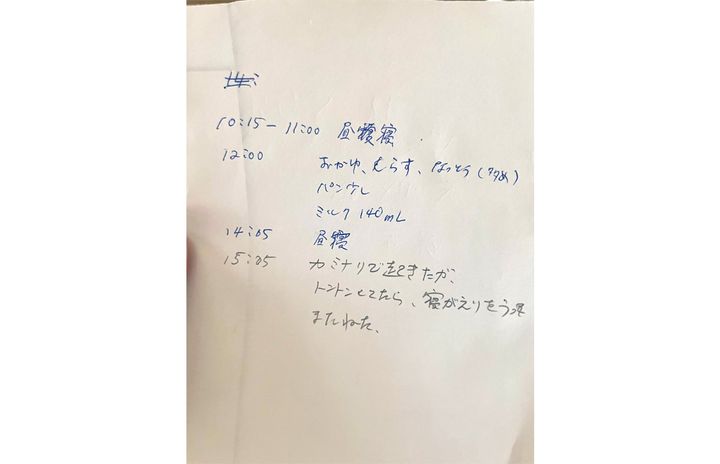 10:15 - 11:00 昼寝
12:00 おかゆ、しらす、なっとう (多め)
パン少し
ミルク 140mL
14:05 昼寝
15:05 カミナリで起きたが、
トントンしてたら、寝がえりをうって
またねた。